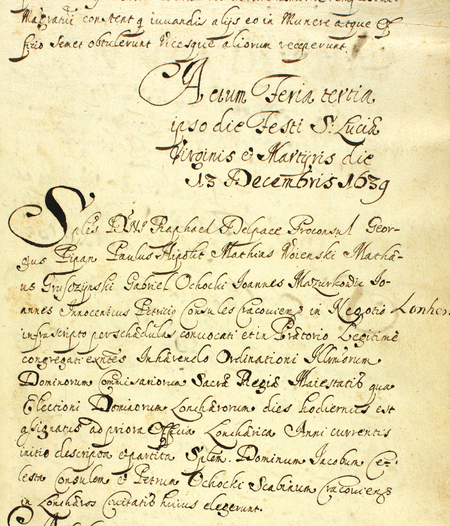 Magratui constent q iuuandis alijs eo in Munere atque Of
ficio Semet obtulerunt Vicesque aliorum receperunt.
Actum Feria tertia
ipso die Festi S. Luciæ
Virginis et Martyris die
13 Decembris 1639
Splis Dns Raphael Delpace Proconsul Geor-
gius Pipan Paulus Mathias Woienski Mathæ-
us Gabriel Ochocki Joannes Mazurkowic Jo-
annes Innocentius Petricÿ Consules Cracouiens in Negotio Lonhero
infrascripto per schædulas conuocati et in Prætorio Legitime
congregati exntes Inhærendo Ordinationi Illmorum
Dominorum Commissariorum Sacræ Regiæ Maiestatis qua
Electioni Dominorum Lonhærorum dies hodiernus est
assignatus ad priora Officia Lonhærica Anni currentis
initio descripta et partita Splem. Dominum Jacobum Ce-
lesta Consulem et Petrum Ochocki Scabinum Cracouiens
in Lonhæros Ciuitatis huius elegerunt.